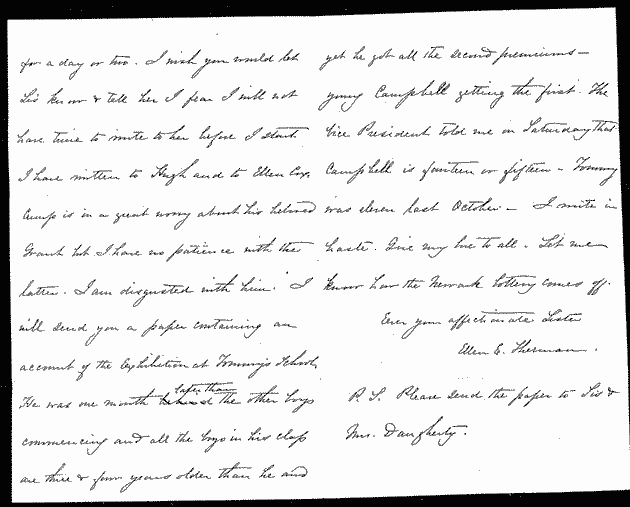 for a day or two. I wish you would let
Sis know & tell her I fear I will not
have time to write to her before I start
I have written to Hugh and to Ellen Cox.
Cump is in a great worry about his beloved
Grant but I have no patience with the
latter. I am disgusted with him. I
will send you a paper containing an
account of the Exhibition at Tommy's School.
later than
He was one month behind the other boys
commencing and all the boys in his class
are three & four years older than he and
yet he got all the second premiums —
young Campbell getting the first. The
Vice President told me on Saturday that
Campbell is fourteen or fifteen - Tommy
was eleven last October - I write in
haste. Give my love to all. Let me
know how the Newark lottery comes off.
Ever your affectionate Sister
Ellen E. Sherman.
P. S. Please send the paper to Sis &
Mrs. Daugherty.